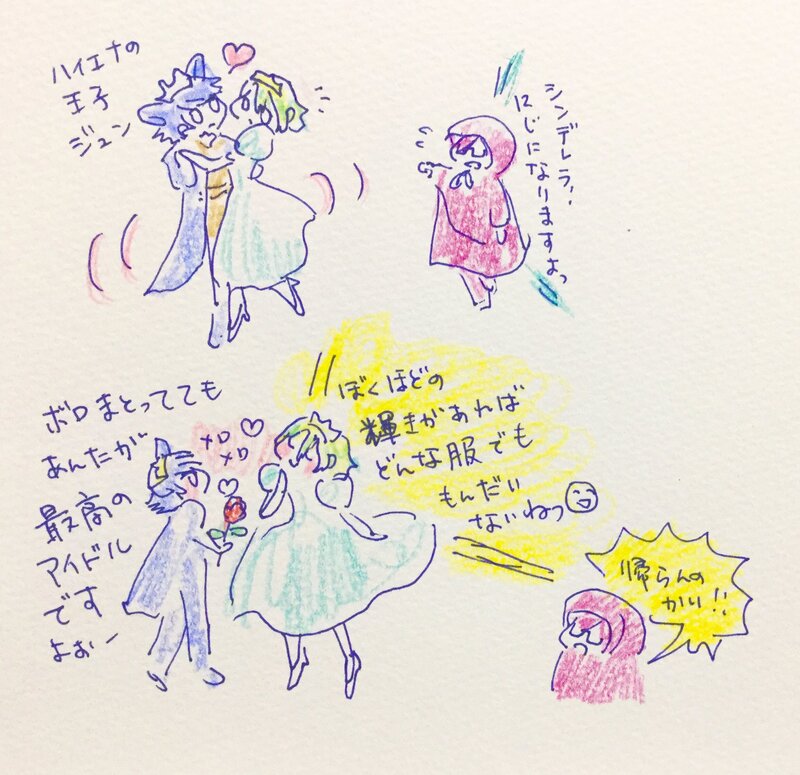 ハイエナの
王子
ジュン
シンデレラ!
12じになりますよっ
ボロまとってても
あんたが
最高の
アイドル
です
よぉー
メロ
メロ
ぼくほどの
輝きがあれば
どんな服でも
もんだい
ないねっ
帰らんの
かい!!